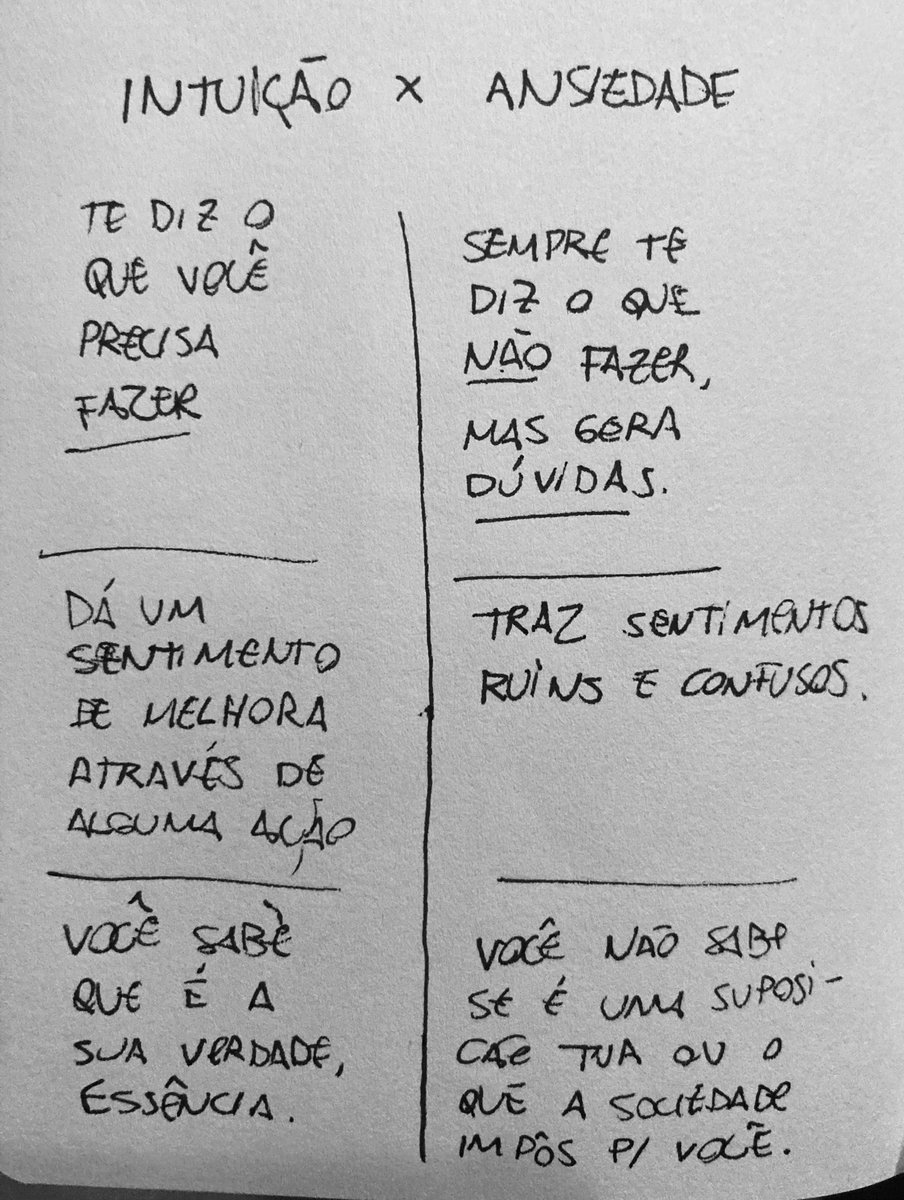 INTUIÇÃO X ANSIEDADE
TE DIZ O
QUE VOCÊ
PRECISA
FAZER
DÁ UM
SENTIMENTO
DE MELHORA
ATRAVÉS DE
ALGUMA AÇÃO
VOCÊ SABE
QUE É A
SUA VERDADE,
ESSÊNCIA.
SEMPRE TE
DIZ O QUE
NÃO FAZER,
MAS GERA
DÚVIDAS.
TRAZ SENTIMENTOS
RUINS E CONFUSOS.
VOCÊ NÃO SABE
SE É UMA SUPOSI-
CÃO TUA OU O
QUE A SOCIEDADE
IMPÔS P/ VOCÊ.